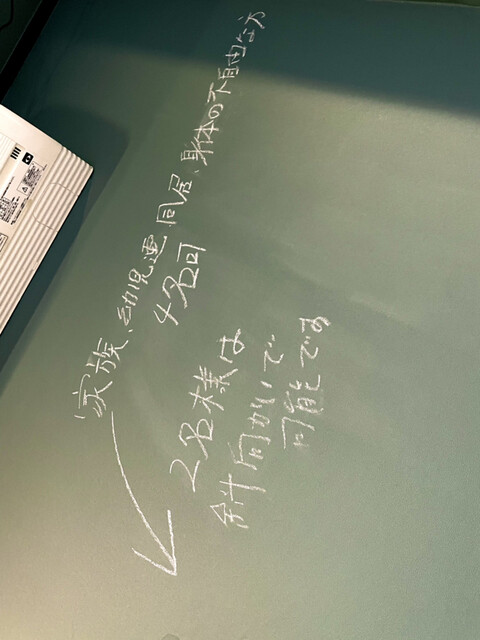 家族、幼児連、同居、身体の不自由な方
4名可
2名様は
斜向かいで
可能です